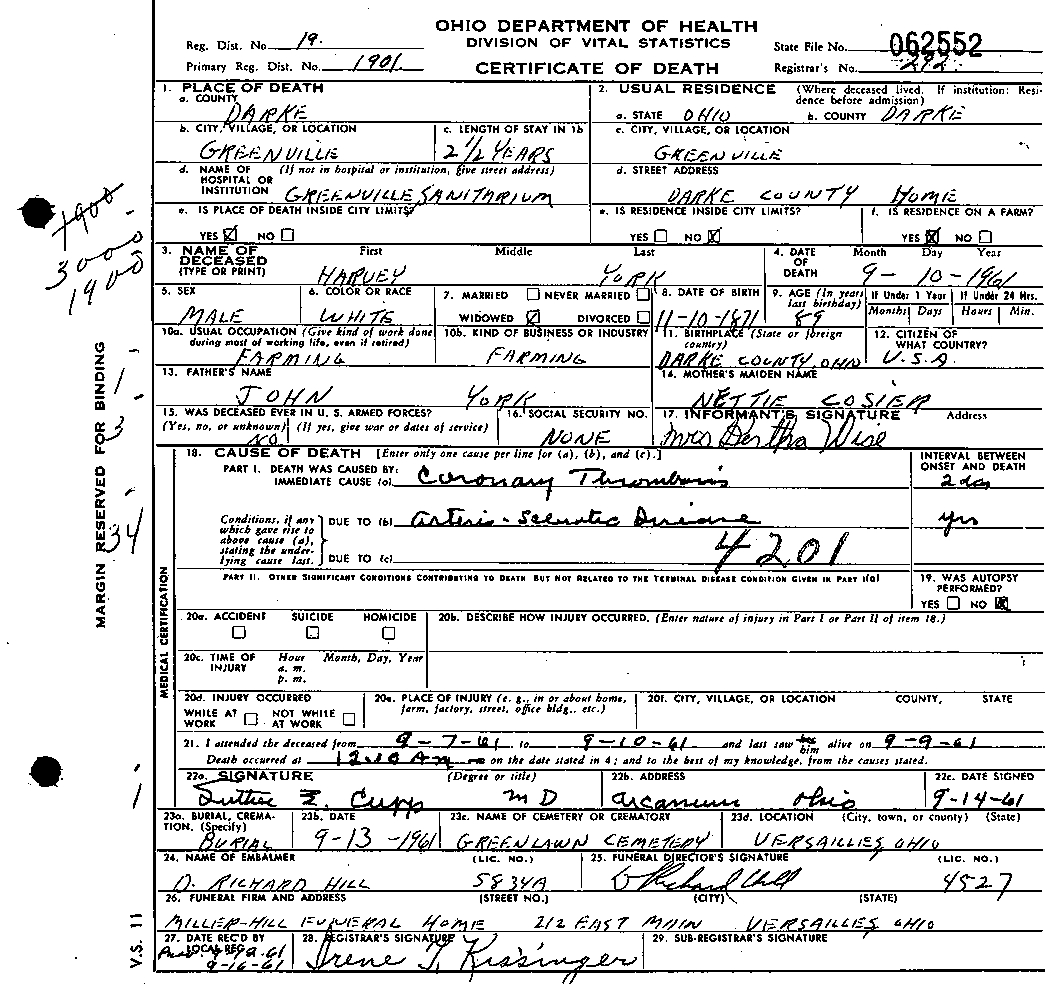 OHIO DEPARTMENT OF HEALTH
DIVISION OF VITAL STATISTICS
CERTIFICATE OF DEATH
Reg. Dist. No. 19.
Primary Reg. Dist. No. 1901
State File No. 062552
Registrar's No. 292
1. PLACE OF DEATH
a. COUNTY DARKE
b. CITY, VILLAGE, OR LOCATION GREENVILLE
c. LENGTH OF STAY IN 1b 2 1/2 YEARS
d. NAME OF HOSPITAL OR INSTITUTION (If not in hospital or institution, give street address) GREENVILLE SANITARIUM
e. IS PLACE OF DEATH INSIDE CITY LIMITS?
YES ☒ NO ☐
2. USUAL RESIDENCE (Where deceased lived. If institution: Residence before admission)
a. STATE OHIO b. COUNTY DARKE
c. CITY, VILLAGE, OR LOCATION GREENVILLE
d. STREET ADDRESS DARKE COUNTY HOME
e. IS RESIDENCE INSIDE CITY LIMITS?
YES ☐ NO ☒
f. IS RESIDENCE ON A FARM?
YES ☒ NO ☐
1900
3000
1900
3. NAME OF DECEASED (TYPE OR PRINT) First Middle Last
HARVEY YORK
4. DATE OF DEATH Month Day Year
9-10-1961
5. SEX MALE
6. COLOR OR RACE WHITE
7. MARRIED ☐ NEVER MARRIED ☐
WIDOWED ☒ DIVORCED ☐
8. DATE OF BIRTH 11-10-1871
9. AGE (In years last birthday) 89
If Under 1 Year Months Days
If Under 24 Hrs. Hours Min.
10a. USUAL OCCUPATION (Give kind of work done during most of working life, even if retired) FARMING
10b. KIND OF BUSINESS OR INDUSTRY FARMING
11. BIRTHPLACE (State or foreign country) DARKE COUNTY, OHIO
12. CITIZEN OF WHAT COUNTRY? U.S.A
13. FATHER'S NAME JOHN YORK
14. MOTHER'S MAIDEN NAME NETTIE COSIER
15. WAS DECEASED EVER IN U. S. ARMED FORCES?
(Yes, no, or unknown) (If yes, give war or dates of service)
NO
16. SOCIAL SECURITY NO. NONE
17. INFORMANT'S SIGNATURE Address
Mrs Bertha Wise
MARGIN RESERVED FOR BINDING
1
3
34
MEDICAL CERTIFICATION
18. CAUSE OF DEATH [Enter only one cause per line for (a), (b), and (c).]
PART I. DEATH WAS CAUSED BY:
IMMEDIATE CAUSE (a) Coronary Thrombosis
INTERVAL BETWEEN ONSET AND DEATH
2 da
Conditions, if any which gave rise to above cause (a), stating the underlying cause last.
DUE TO (b) Arterio-Sclerotic Disease
yrs
DUE TO (c)
4201
PART II. OTHER SIGNIFICANT CONDITIONS CONTRIBUTING TO DEATH BUT NOT RELATED TO THE TERMINAL DISEASE CONDITION GIVEN IN PART I(a)
19. WAS AUTOPSY PERFORMED?
YES ☐ NO ☒
20a. ACCIDENT SUICIDE HOMICIDE
☐ ☐ ☐
20b. DESCRIBE HOW INJURY OCCURRED. (Enter nature of injury in Part I or Part II of item 18.)
20c. TIME OF INJURY Hour Month, Day, Year
a. m.
p. m.
20d. INJURY OCCURRED
WHILE AT WORK ☐ NOT WHILE AT WORK ☐
20e. PLACE OF INJURY (e. g., in or about home, farm, factory, street, office bldg., etc.)
20f. CITY, VILLAGE, OR LOCATION COUNTY, STATE
21. I attended the deceased from 9-7-61 to 9-10-61 and last saw him alive on 9-9-61
Death occurred at 12:10 Am on the date stated in 4; and to the best of my knowledge, from the causes stated.
22a. SIGNATURE (Degree or title)
Luther E. Cupp MD
22b. ADDRESS Arcanum Ohio
22c. DATE SIGNED 9-14-61
23a. BURIAL, CREMATION, (Specify) BURIAL
23b. DATE 9-13-1961
23c. NAME OF CEMETERY OR CREMATORY GREENLAWN CEMETERY
23d. LOCATION (City, town, or county) (State) VERSAILLES OHIO
24. NAME OF EMBALMER (LIC. NO.)
D. RICHARD HILL 5834A
25. FUNERAL DIRECTOR'S SIGNATURE (LIC. NO.)
D Richard Hill 4527
26. FUNERAL FIRM AND ADDRESS (STREET NO.) (CITY) (STATE)
MILLER-HILL FUNERAL HOME 212 EAST MAIN VERSAILLES OHIO
27. DATE REC'D BY LOCAL REG.
9-16-61
28. REGISTRAR'S SIGNATURE
Irene T. Kissinger
29. SUB-REGISTRAR'S SIGNATURE
V.S. 11